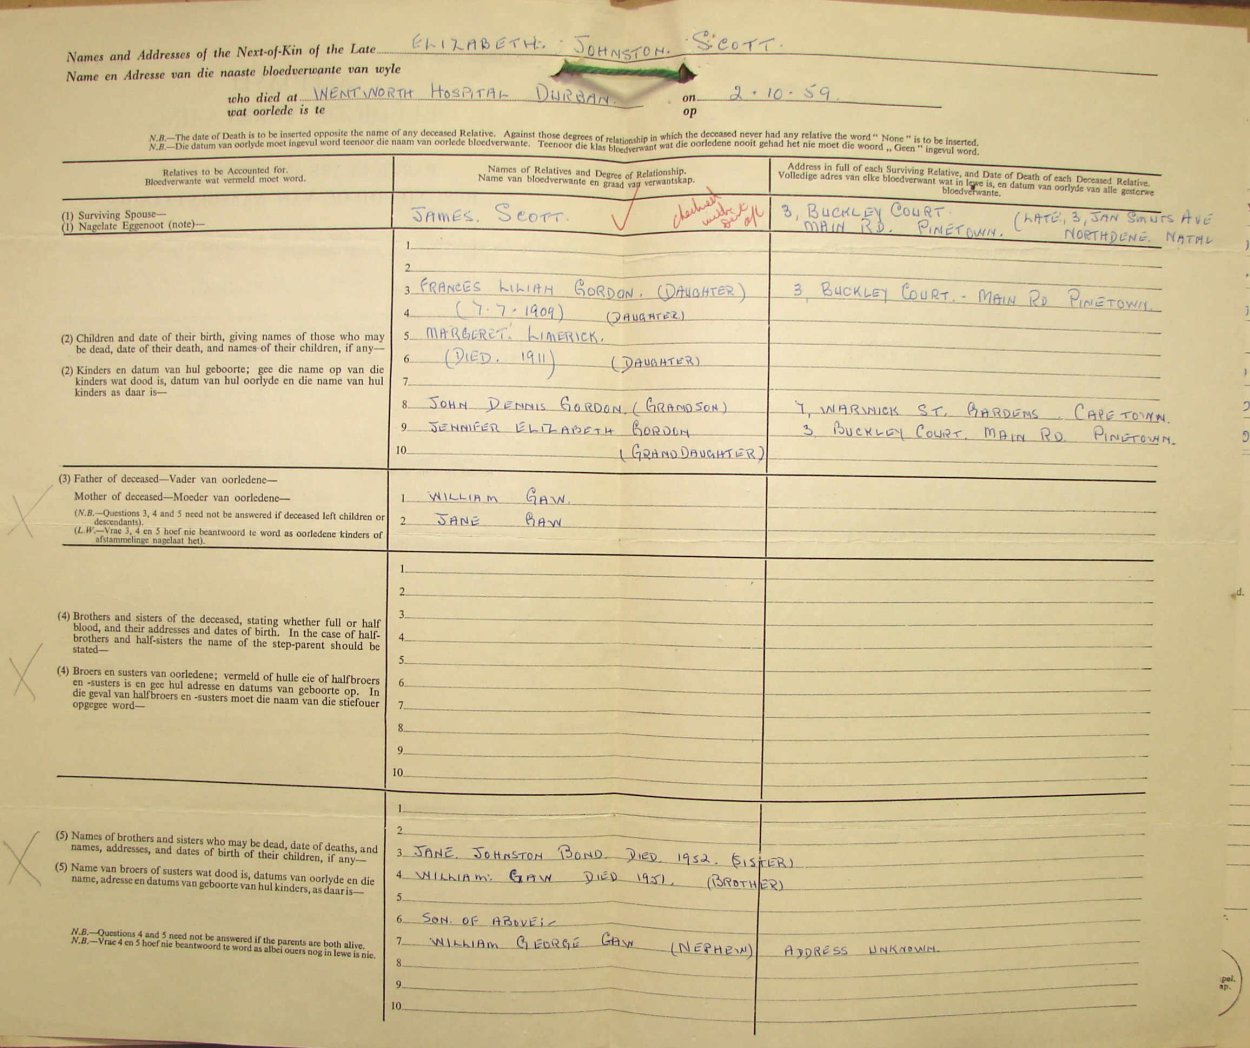 Names and Addresses of the Next-of-Kin of the Late ELIZABETH. JOHNSTON. SCOTT.
Name en Adresse van die naaste bloedverwante van wyle
who died at WENTWORTH HOSPITAL DURBAN. on 2.10.59.
wat oorlede is te op
N.B.—The date of Death is to be inserted opposite the name of any deceased Relative. Against those degrees of relationship in which the deceased never had any relative the word "None" is to be inserted.
N.B.—Die datum van oorlyde moet ingevul word teenoor die naam van oorlede bloedverwante. Teenoor die klas bloedverwant wat die oorledene nooit gehad het nie moet die woord „Geen" ingevul word.
Relatives to be Accounted for.
Bloedverwante wat vermeld moet word.
Names of Relatives and Degree of Relationship.
Name van bloedverwante en graad van verwantskap.
Address in full of each Surviving Relative, and Date of Death of each Deceased Relative.
Volledige adres van elke bloedverwant wat in lewe is, en datum van oorlyde van alle gestorwe
bloedverwante.
(1) Surviving Spouse—
(1) Nagelate Eggenoot (note)—
JAMES. SCOTT.
checked
3, BUCKLEY COURT. (LATE, 3, JAN SMUTS AVE
MAIN RD. PINETOWN. NORTHDENE. NATAL
(2) Children and date of their birth, giving names of those who may
be dead, date of their death, and names of their children, if any—
(2) Kinders en datum van hul geboorte; gee die name op van die
kinders wat dood is, datum van hul oorlyde en die name van hul
kinders as daar is—
1
2
3 FRANCES LILIAN GORDON. (DAUGHTER) 3, BUCKLEY COURT. - MAIN RD PINETOWN.
4 (7.7.1909) (DAUGHTER)
5 MARGERET. LIMERICK.
6 (DIED. 1911) (DAUGHTER)
7
8 JOHN DENNIS GORDON. (GRANDSON) 7, WARWICK ST. GARDENS. CAPETOWN.
9 JENNIFER ELIZABETH GORDON 3 BUCKLEY COURT. MAIN RD PINETOWN.
10 (GRANDDAUGHTER)
(3) Father of deceased—Vader van oorledene—
Mother of deceased—Moeder van oorledene—
(N.B.—Questions 3, 4 and 5 need not be answered if deceased left children or
descendants).
(L.W.—Vrae 3, 4 en 5 hoef nie beantwoord te word as oorledene kinders of
afstammelinge nagelaat het).
1 WILLIAM GAW.
2 JANE GAW
(4) Brothers and sisters of the deceased, stating whether full or half
blood, and their addresses and dates of birth. In the case of half-
brothers and half-sisters the name of the step-parent should be
stated—
(4) Broers en susters van oorledene; vermeld of hulle eie of halfbroers
en -susters is en gee hul adresse en datums van geboorte op. In
die geval van halfbroers en -susters moet die naam van die stiefouer
opgegee word—
1
2
3
4
5
6
7
8
9
10
(5) Names of brothers and sisters who may be dead, date of deaths, and
names, addresses, and dates of birth of their children, if any—
(5) Name van broers of susters wat dood is, datums van oorlyde en die
name, adresse en datums van geboorte van hul kinders, as daar is—
N.B.—Questions 4 and 5 need not be answered if the parents are both alive.
N.B.—Vrae 4 en 5 hoef nie beantwoord te word as albei ouers nog in lewe is nie.
1
2
3 JANE. JOHNSTON BOND. DIED. 1952. (SISTER)
4 WILLIAM. GAW DIED 1951. (BROTHER)
5
6 SON. OF ABOVE:-
7 WILLIAM GEORGE GAW (NEPHEW) ADDRESS UNKNOWN.
8
9
10